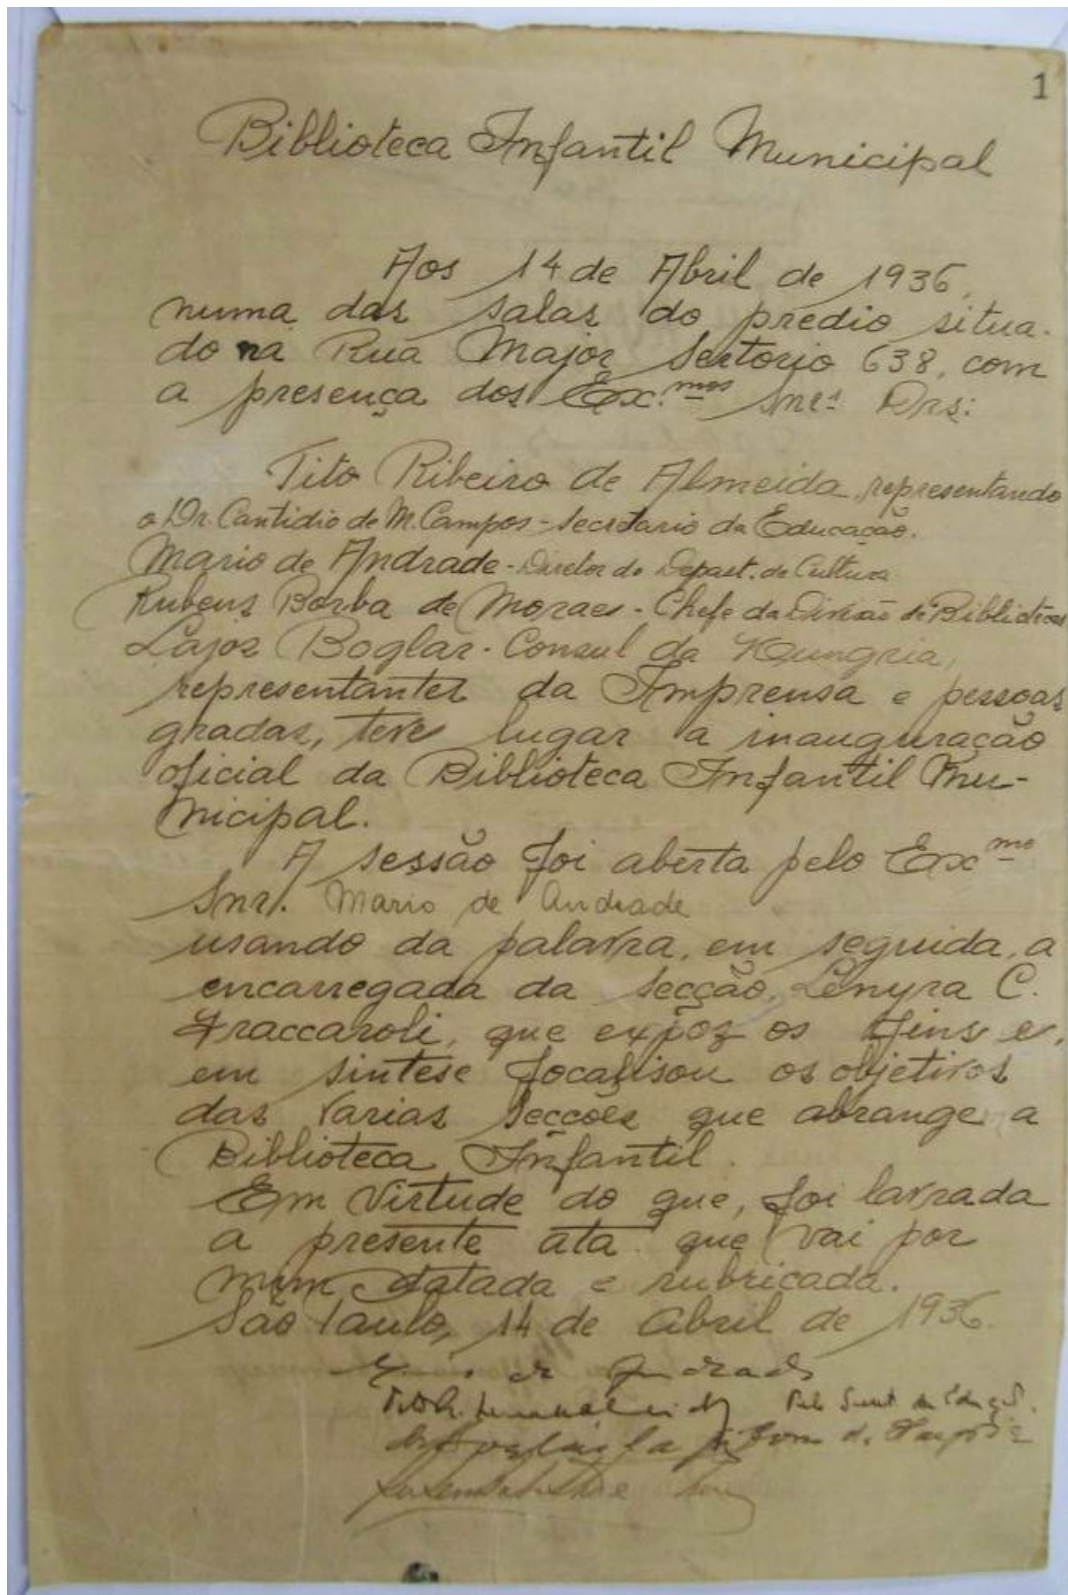 1
Biblioteca Infantil Municipal
Aos 14 de Abril de 1936,
numa das salas do predio situa-
do na Rua Major Sertorio 638, com
a presença dos Ex.mos Snrs. Drs:
Tito Ribeiro de Almeida, representando
o Dr. Cantidio de M. Campos - Secretario da Educação.
Mario de Andrade - Diretor do Depart. de Cultura
Rubens Borba de Moraes - Chefe da Divisão de Bibliotecas
Lajos Boglar - Consul da Hungria,
representantes da Imprensa e pessoas
gradas, teve lugar a inauguração
oficial da Biblioteca Infantil Mu-
nicipal.
A sessão foi aberta pelo Exmo
Snr. Mario de Andrade
usando da palavra, em seguida, a
encarregada da secção, Lenyra C.
Fraccaroli, que expôz os fins e,
em sintese focalisou os objetivos
das varias secções que abrange a
Biblioteca Infantil.
Em virtude do que, foi lavrada
a presente ata que vai por
mim datada e rubricada.
São Paulo, 14 de abril de 1936.
de Andrade